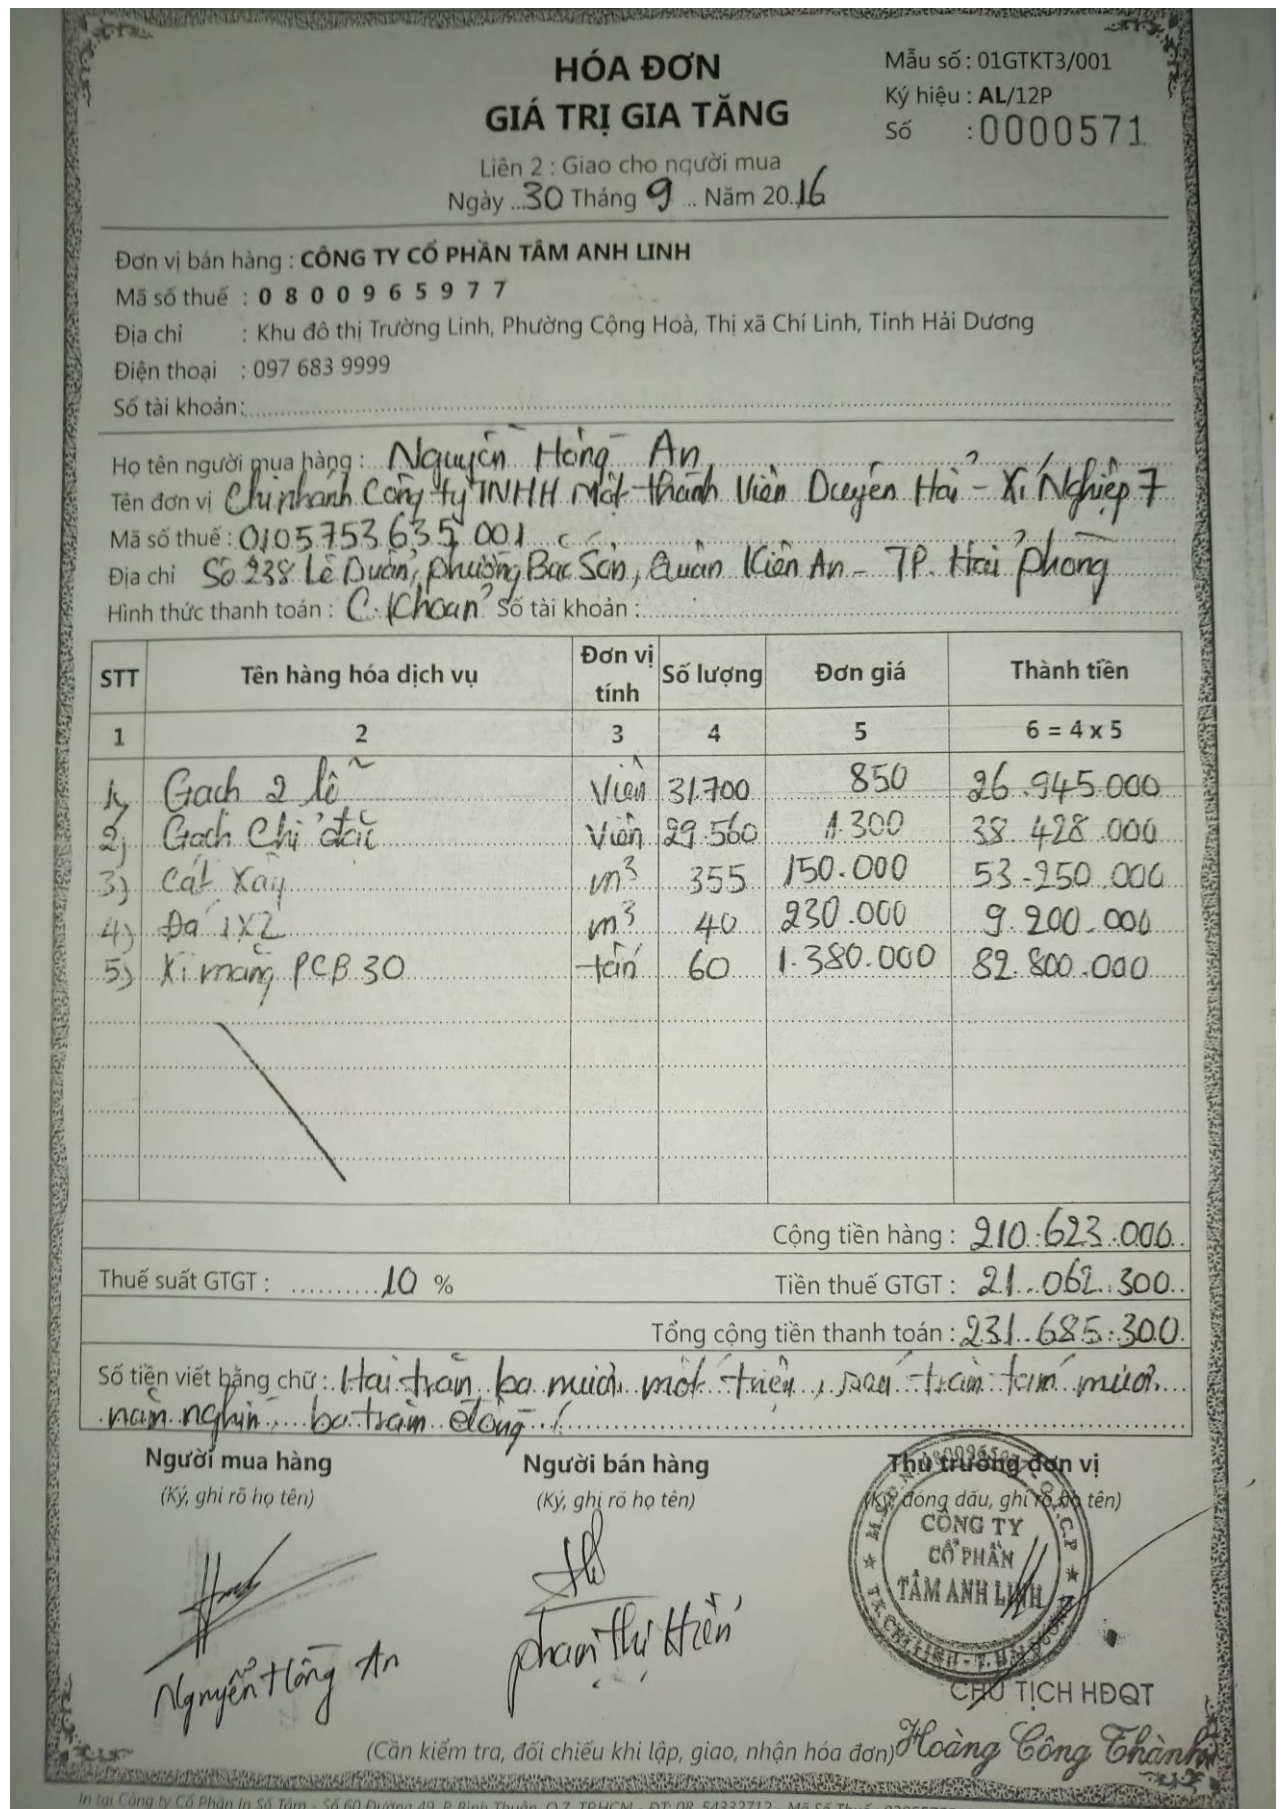 HÓA ĐƠN
GIÁ TRỊ GIA TĂNG
Mẫu số : 01GTKT3/001
Ký hiệu : AL/12P
Số : 0000571
Liên 2 : Giao cho người mua
Ngày ...30 Tháng 9 ... Năm 20.16
Đơn vị bán hàng : CÔNG TY CỔ PHẦN TÂM ANH LINH
Mã số thuế : 0 8 0 0 9 6 5 9 7 7
Địa chỉ : Khu đô thị Trường Linh, Phường Cộng Hoà, Thị xã Chí Linh, Tỉnh Hải Dương
Điện thoại : 097 683 9999
Số tài khoản:
Họ tên người mua hàng : Nguyễn Hồng An
Tên đơn vị Chi nhánh Công ty TNHH Một thành Viên Duyên Hải - Xí Nghiệp 7
Mã số thuế : 0105753635 001
Địa chỉ Số 238 Lê Duẩn, phường Bắc Sơn, Quận Kiến An - TP. Hải Phòng
Hình thức thanh toán : C. Khoản Số tài khoản :
STT Tên hàng hóa dịch vụ Đơn vị tính Số lượng Đơn giá Thành tiền
1 2 3 4 5 6 = 4 x 5
1) Gạch 2 lỗ Viên 31.700 850 26.945.000
2) Gạch Chỉ đặc Viên 29.560 1.300 38.428.000
3) Cát Xây m³ 355 150.000 53.250.000
4) Đá 1X2 m³ 40 230.000 9.200.000
5) Xi măng PCB 30 tấn 60 1.380.000 82.800.000
Cộng tiền hàng : 210.623.000
Thuế suất GTGT : ..........10 % Tiền thuế GTGT : 21.062.300
Tổng cộng tiền thanh toán : 231.685.300
Số tiền viết bằng chữ : Hai trăm ba mươi một triệu, sáu trăm tám mươi
năm nghìn, ba trăm đồng /
Người mua hàng Người bán hàng Thủ trưởng đơn vị
(Ký, ghi rõ họ tên) (Ký, ghi rõ họ tên) (Ký, đóng dấu, ghi rõ họ tên)
CÔNG TY
CỔ PHẦN
TÂM ANH LINH
Nguyễn Hồng An
Phạm Thị Hiền
CHỦ TỊCH HĐQT
Hoàng Công Thành
(Cần kiểm tra, đối chiếu khi lập, giao, nhận hóa đơn)
In tại Công ty Cổ Phần In Số Tám - Số 60 Đường 49, P. Bình Thuận, Q.7, TP.HCM - ĐT: 08. 54332712 - Mã Số Thuế